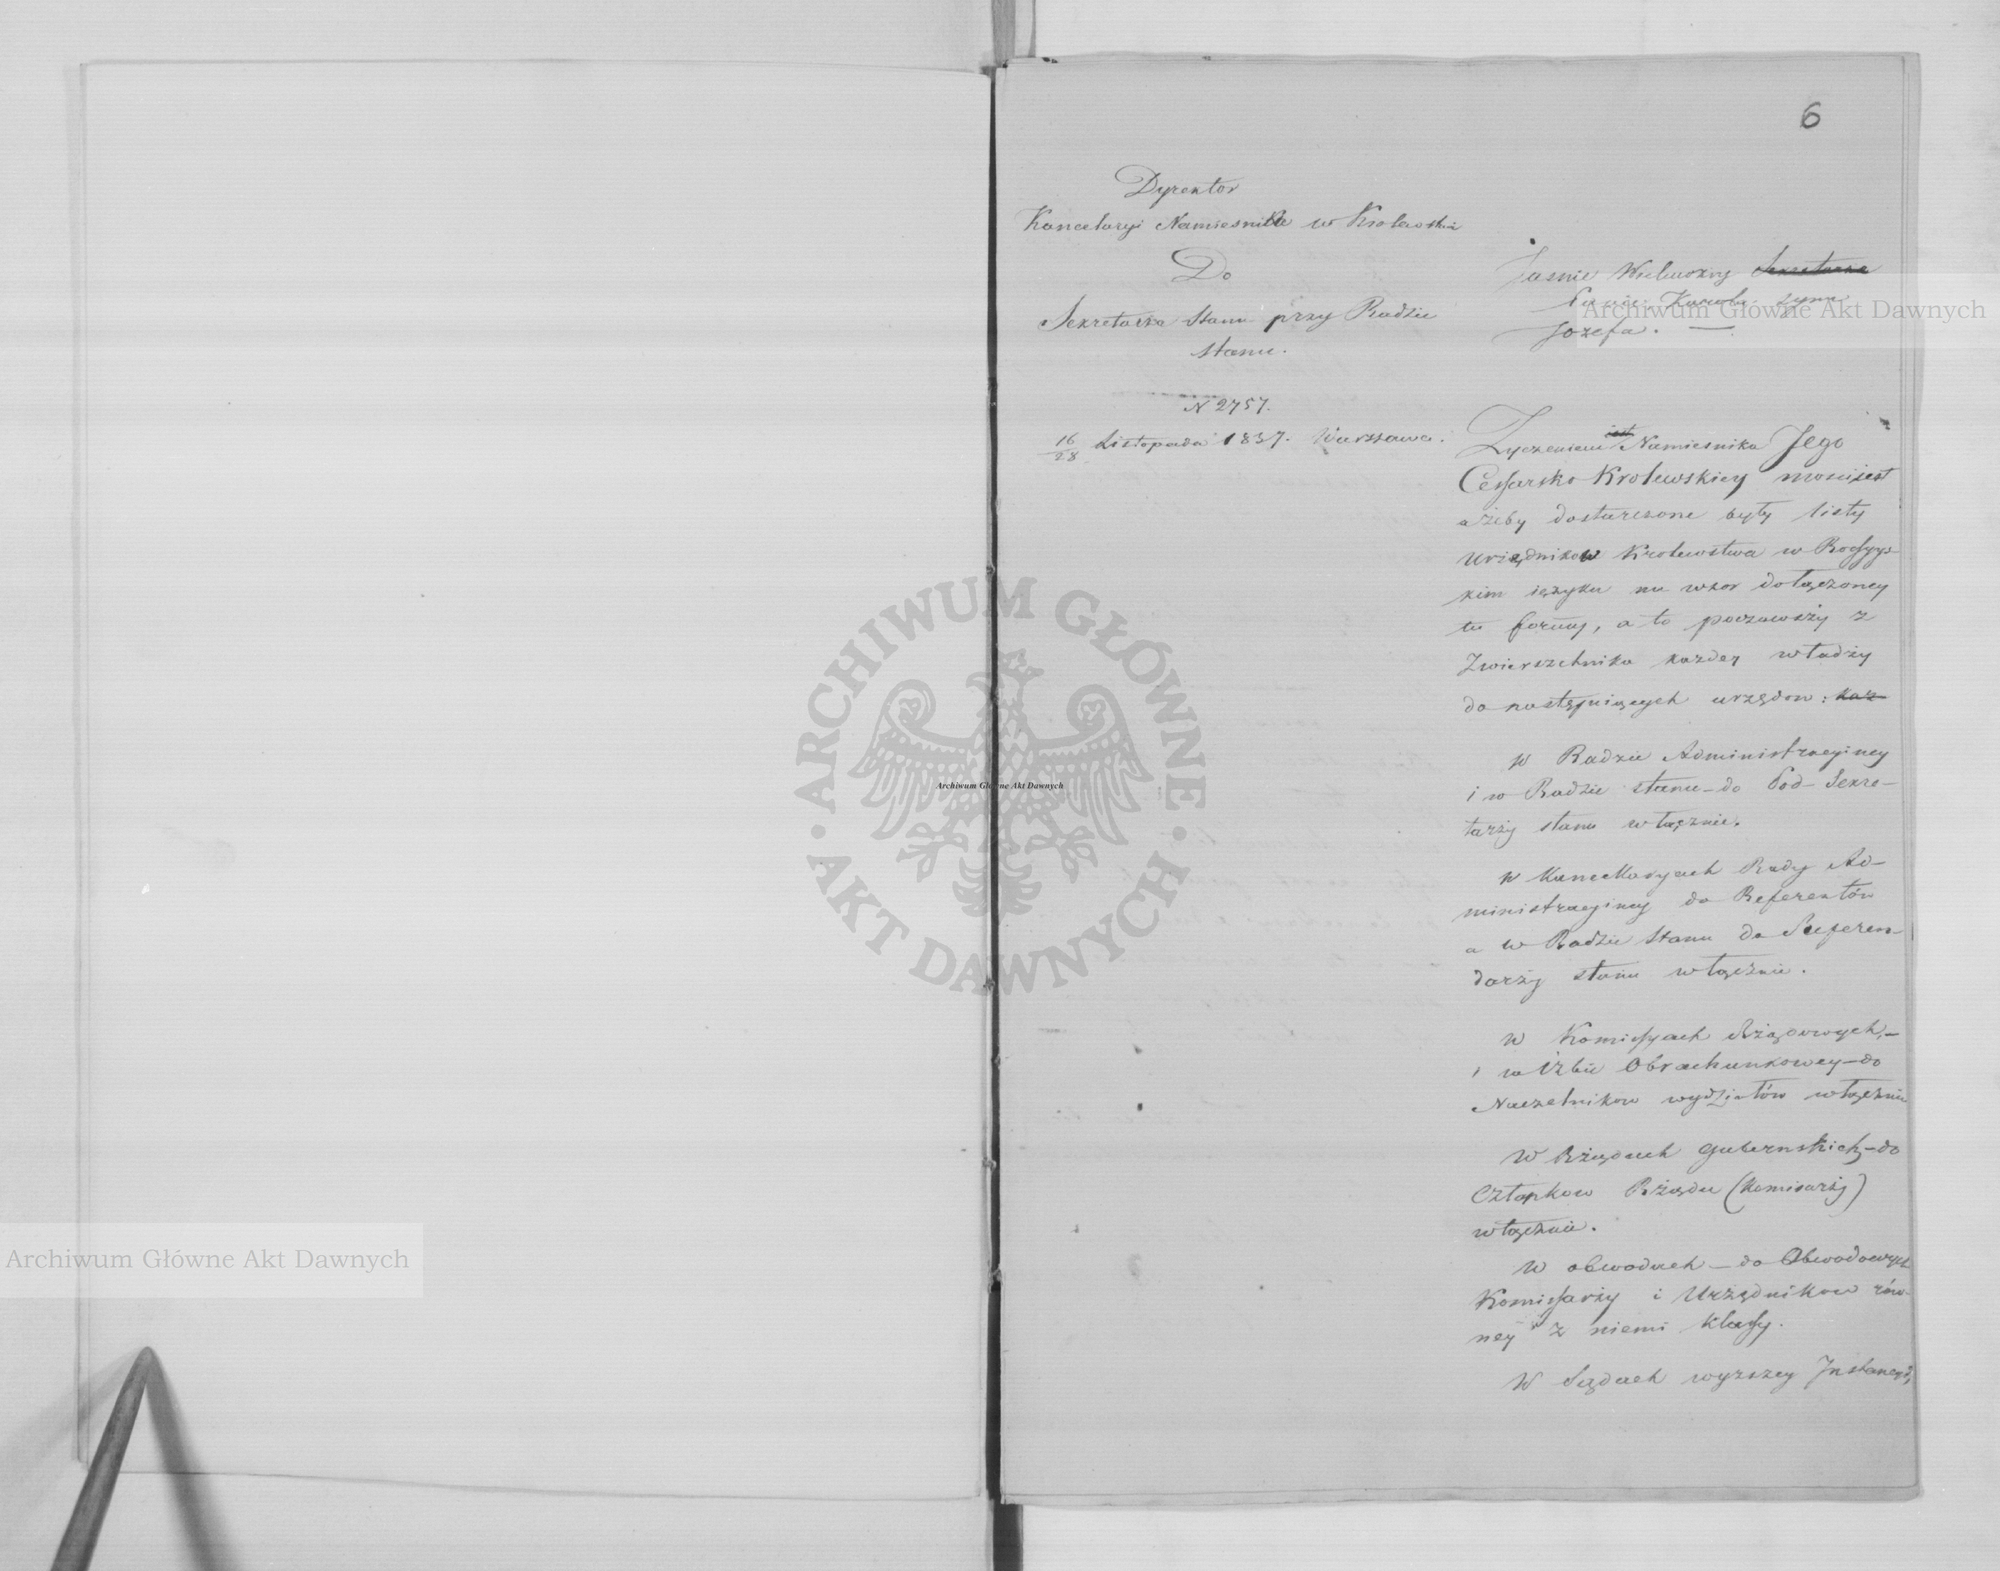 6
Dyrektor
Kancelaryi Namiesnika w Krolewstwie
Do
Sekretarza Stanu przy Radzie
Stanu.
N 2757.
16/28 Listopada 1837. Warszawa.
Jasnie Wielmozny Sekretarza
Panie Karolu synu
Jozefa. —
Zyczeniem jest Namiesnika Jego
Cessarsko Krolewskiey mosci jest
ażeby dostarczone były listy
Urzędnikow Krolewstwa w Rossyys-
kim ięzyku na wzor dołączoney
tu formy, a to począwszy z
Zwierzchnika kazdey władzy
do następuiących urzędow: kaz
w Radzie Administracyiney
i w Radzie stanu – do Pod-Sekre-
tarzy stanu włącznie.
w Kancellaryach Rady Ad-
ministracyiney do Referentów
a w Radzie Stanu do Referen-
darzy stanu włącznie.
w Komissyach Rżądowych, –
i w Izbie Obrachunkowey – do
Naczelnikow wydziałów włącznie
W Rżądach gubernskich – do
Członkow Rżądu (Komisarży)
włącznie.
w obwodach – do Obwodowych
Komissarży i Urzędnikow rów-
ney z niemi klassy.
W Sądach wyzszey Instancyi,
Archiwum Główne Akt Dawnych
Archiwum Główne Akt Dawnych
Archiwum Główne Akt Dawnych
ARCHIWUM GŁÓWNE
AKT DAWNYCH